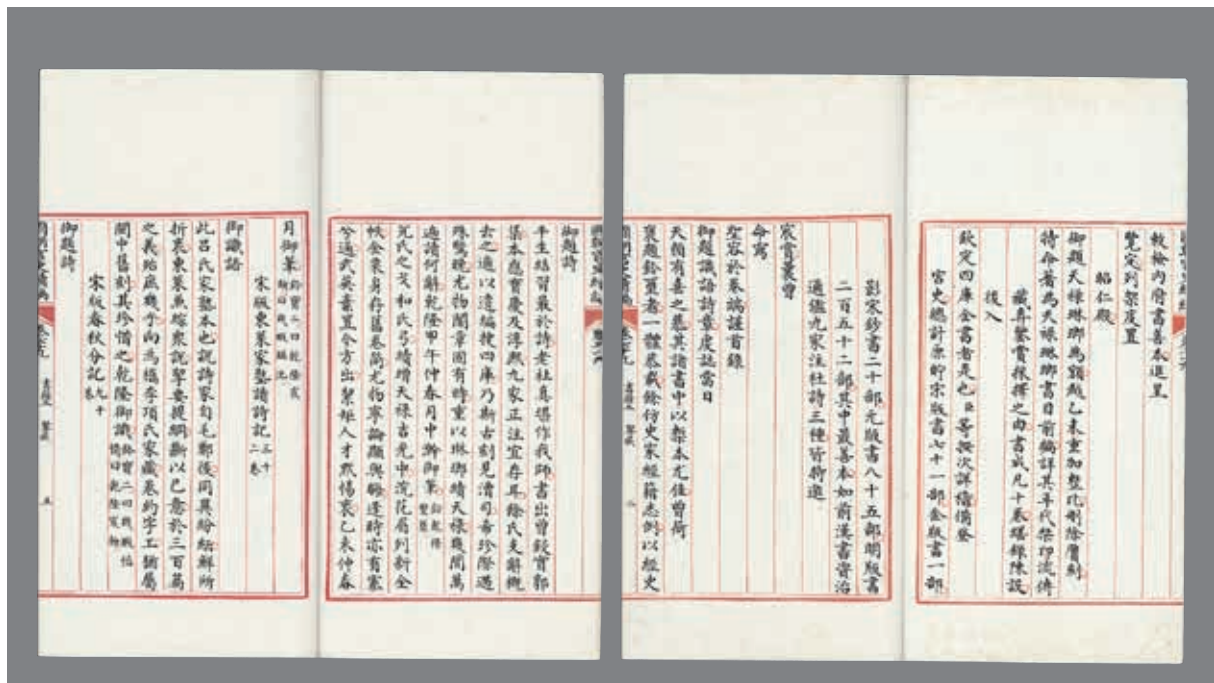 敕檢內府書善本進呈
覽定列架庋置
昭仁殿
御題天祿琳瑯為額越乙未重加整比刪除贗刻
特命著為天祿琳瑯書目前編詳其年代槧印流傳
藏弆鑒賞採擇之由書成凡十卷繕錄陳設
後入
欽定四庫全書者是也臣等撰次詳備備登
宮史總計原貯宋版書七十一部金版書一部
影宋鈔書二十部元版書八十五部明版書
二百五十二部其中最善本如前漢書資治
通鑑九家注杜詩三種皆特邀
宸賞曩曾
命寫
聖容於卷端謹首錄
御題識語詩章庋誌當日
天顏有喜之意其諸書中以槧本尤佳曾荷
褒題鈐璽者一體恭載餘仿史家經籍志例以經史
御題詩
平生結習最於詩老杜真堪作我師書出曾鋟實郭
集本應寶慶及淳熙九家正注宜存耳餘氏支辭概
去之適以遺編搜四庫乃斯古刻見漕司希珍際遇
殊驚晚尤物闡章固有時重以琳瑯續天祿幾閒萬
遍讀何辭乾隆甲午仲春月中澣御筆
兌氏之戈和氏弓續增天祿吉光中浣花眉列新全
帙金粟身存舊卷筒尤物寧論顯與晦逢時亦有塞
兮通武英棄置今方出絜矩人才默惕衷乙未仲春
月御筆
宋版東萊家塾讀詩記三十二卷
御識語
此呂氏家塾本也說詩家自毛鄭後同異紛紜鮮所
折衷東萊薈綜衆說挈要提綱斷以己意於三百篇
之義給庶幾乎向為橋李項氏家藏卷約字工猶屬
閩中舊刻其珍惜之乾隆御識
宋版春秋分記九十卷
御題詩